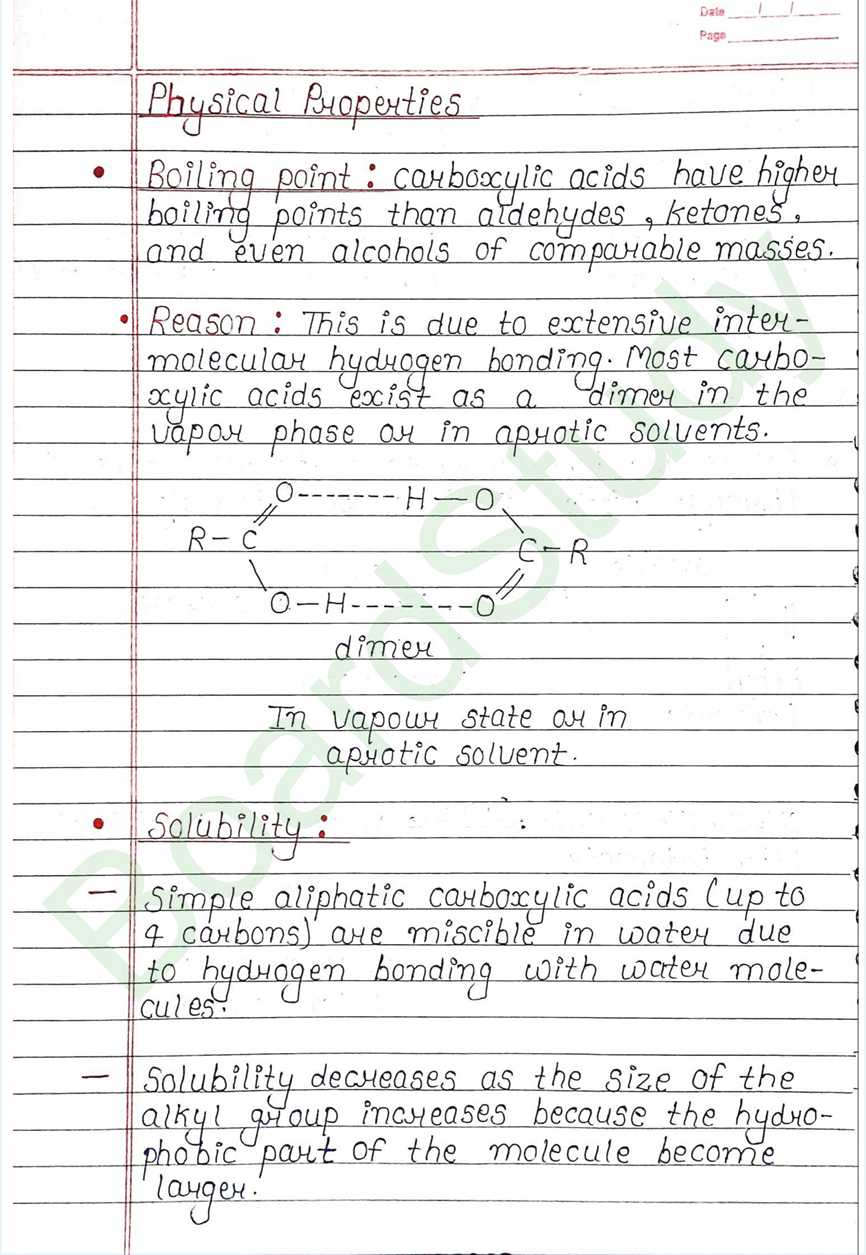 Date __/__/__
Page
Physical Properties
• Boiling point : carboxylic acids have higher
boiling points than aldehydes, ketones,
and even alcohols of comparable masses.
• Reason : This is due to extensive inter-
molecular hydrogen bonding. Most carbo-
xylic acids exist as a dimer in the
vapor phase or in aprotic solvents.
O------- H—O
R—C
C—R
O—H-------O
dimer
In vapour state or in
aprotic solvent.
• Solubility :
— Simple aliphatic carboxylic acids (up to
4 carbons) are miscible in water due
to hydrogen bonding with water mole-
cules.
— Solubility decreases as the size of the
alkyl group increases because the hydro-
phobic part of the molecule become
larger.
BoardStudy